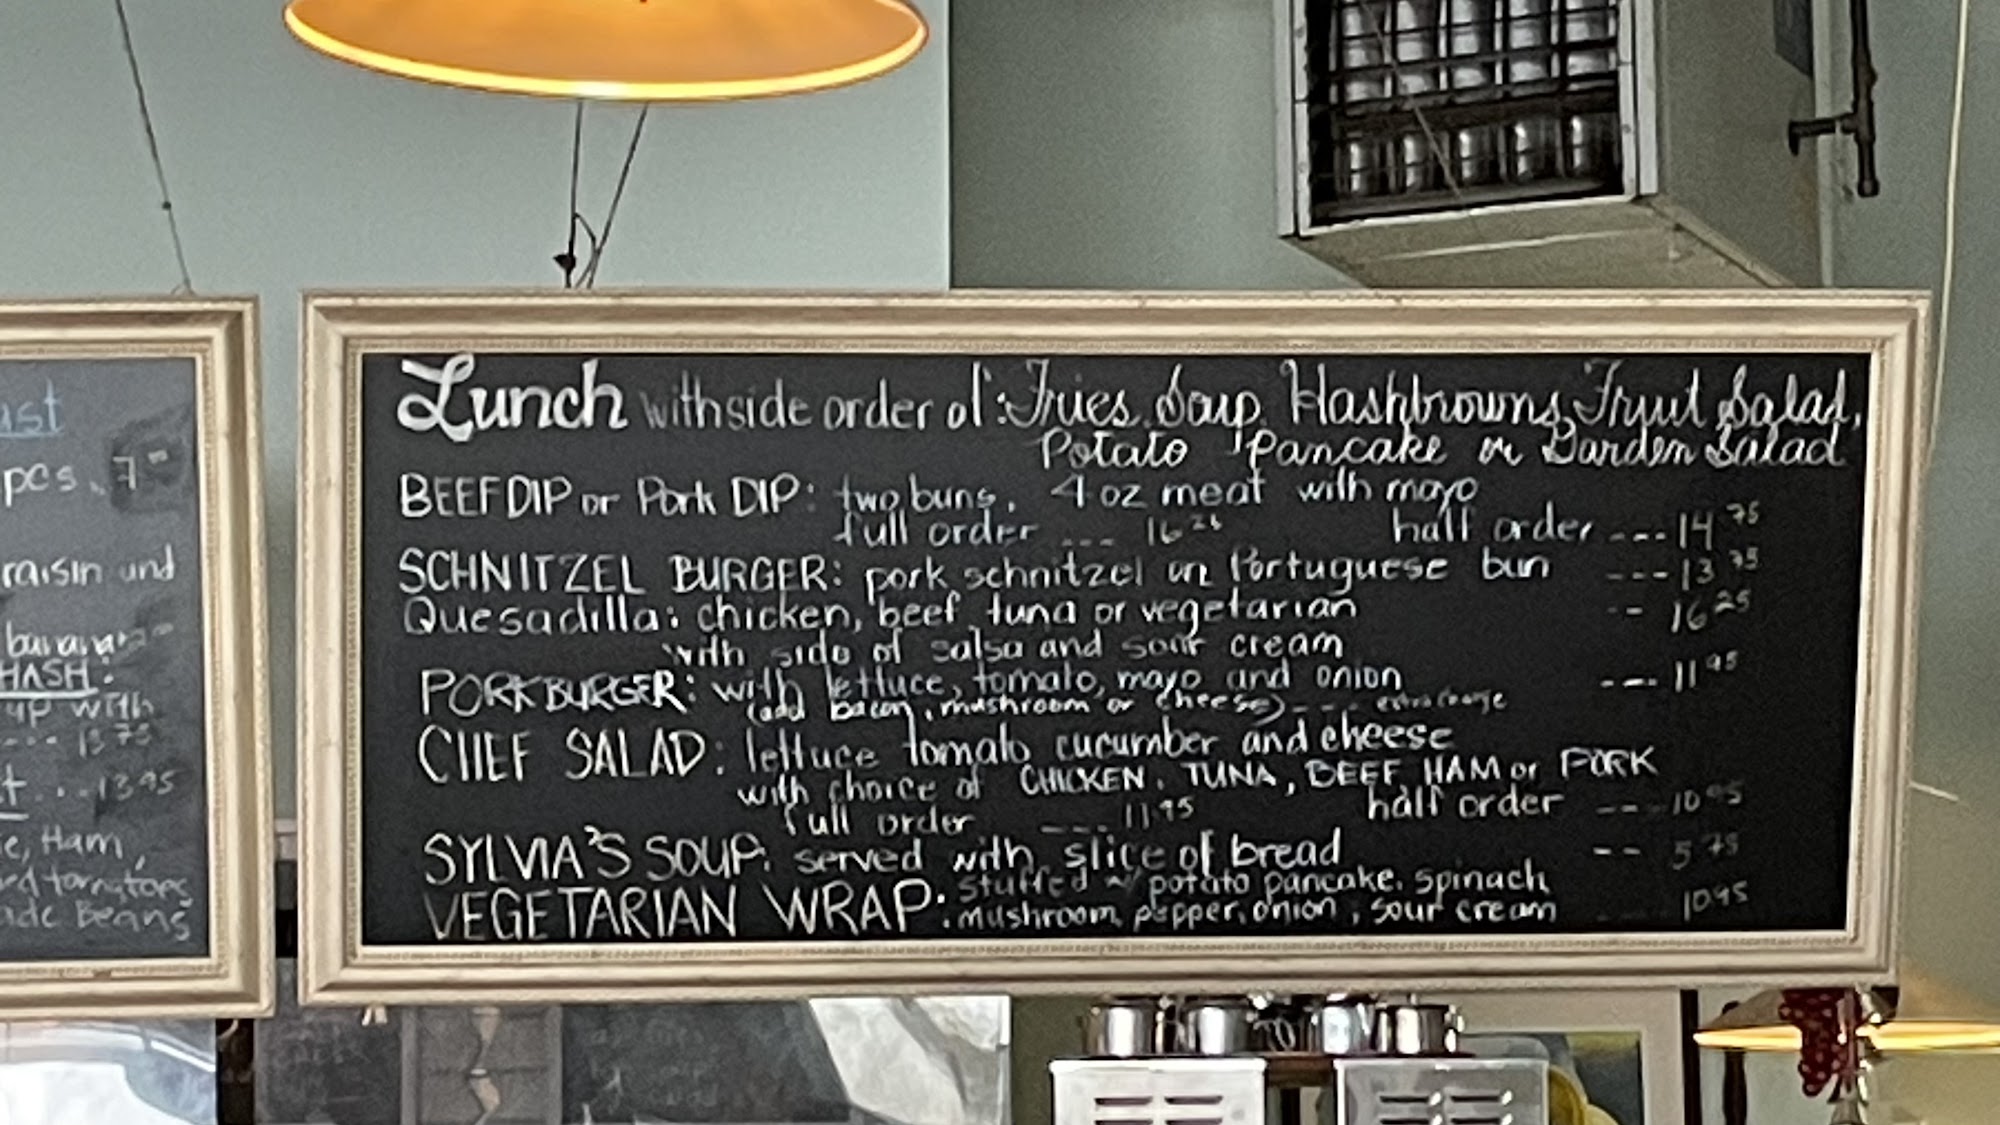 ast
pcs. 7
raisin and
banana
HASH:
up with
... 13 75
t ... 13 95
e, Ham,
tomatoes
ade Beans
Lunch with side order of: Fries, Soup, Hashbrowns, Fruit Salad,
Potato Pancake or Garden Salad
BEEF DIP or Pork DIP: two buns, 4 oz meat with mayo
full order --- 16 25 half order --- 14 75
SCHNITZEL BURGER: pork schnitzel on Portuguese bun --- 13 75
Quesadilla: chicken, beef, tuna or vegetarian -- 16 25
with side of salsa and sour cream
PORK BURGER: with lettuce, tomato, mayo and onion --- 11 95
(add bacon, mushroom or cheese) --- extra charge
CHEF SALAD: lettuce tomato cucumber and cheese
with choice of CHICKEN, TUNA, BEEF, HAM or PORK
full order --- 11 95 half order -- 10 95
SYLVIA'S SOUP: served with slice of bread -- 5 75
VEGETARIAN WRAP: stuffed w/ potato pancake, spinach
mushroom, pepper, onion, sour cream 10 95